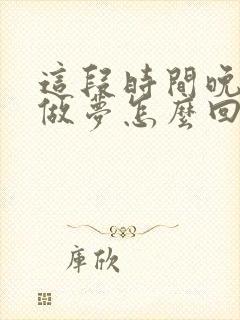 這段時間晚
做夢怎麼回
庫欣